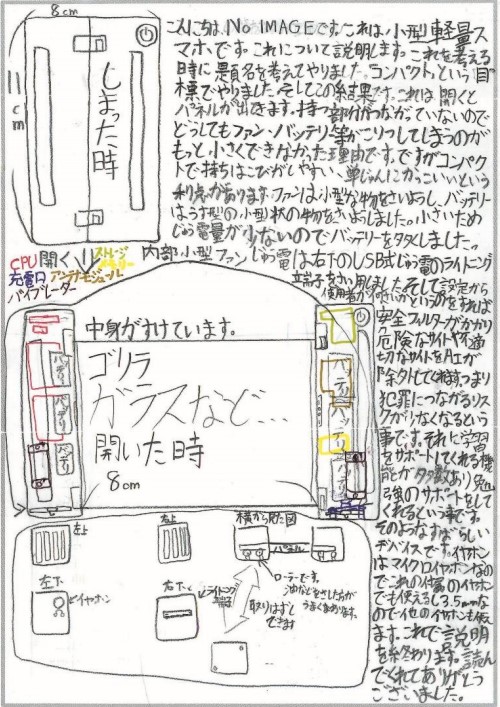 8cm
11cm
しまった時
こんにちは、No IMAGEです。これは小型軽量ス
マホです。これについて説明します。これを考える
時に題名を考えてやりました。コンパクトという目
標でやりました。そしてこの結果です。これは開くと
パネルが出きます。持つ部分がつながっていないので
どうしてもファン・バッテリー等がこりつしてしまうのが
もっと小さくできなかった理由です。ですがコンパク
トで持ちはこびがしやすい、単じゅんにかっこいいという
利点があります。ファンは小型な物をさいようし、バッテリー
はうす型の小型状の物をさいようしました。小さいため
じゅう電量が少ないのでバッテリーを多くしました。
じゅう電は右下のUSB式じゅう電のライトニング
端子をさい用しました。そして設定から
使用者が
安全フィルターがかかり
危険なサイトや不適
切なサイトをAIが
除外してくれます。つまり
犯罪につながるリス
クが少なくなるという
事です。それに学習
をサポートしてくれる機
能が多数あり勉
強のサポートをして
くれるという事です。
そのようなすばらしい
デバイスです。イヤホン
はマイクロイヤホンなの
でこれの付属のイヤホン
でも使えるし3.5mmな
ので他のイヤホンも使え
ます。これで説明
を終わります。読ん
でくれてありがとう
ございました。
CPU
開く
ストレージ
メモリー
内部小型ファン
充電口
アンテナモジュール
バイブレーター
中身がすけています。
ゴリラ
ガラスなど...
開いた時
8cm
バッテリ
バッテリ
バッテリ
バッテリ
バッテリ
バッテリ
左上
右上
横から見た図
パネル
左下
イヤホン
右下
ライトニング
端子
ローラーです。
油などをさした方が
うまくまわります。
取りはずし
できます